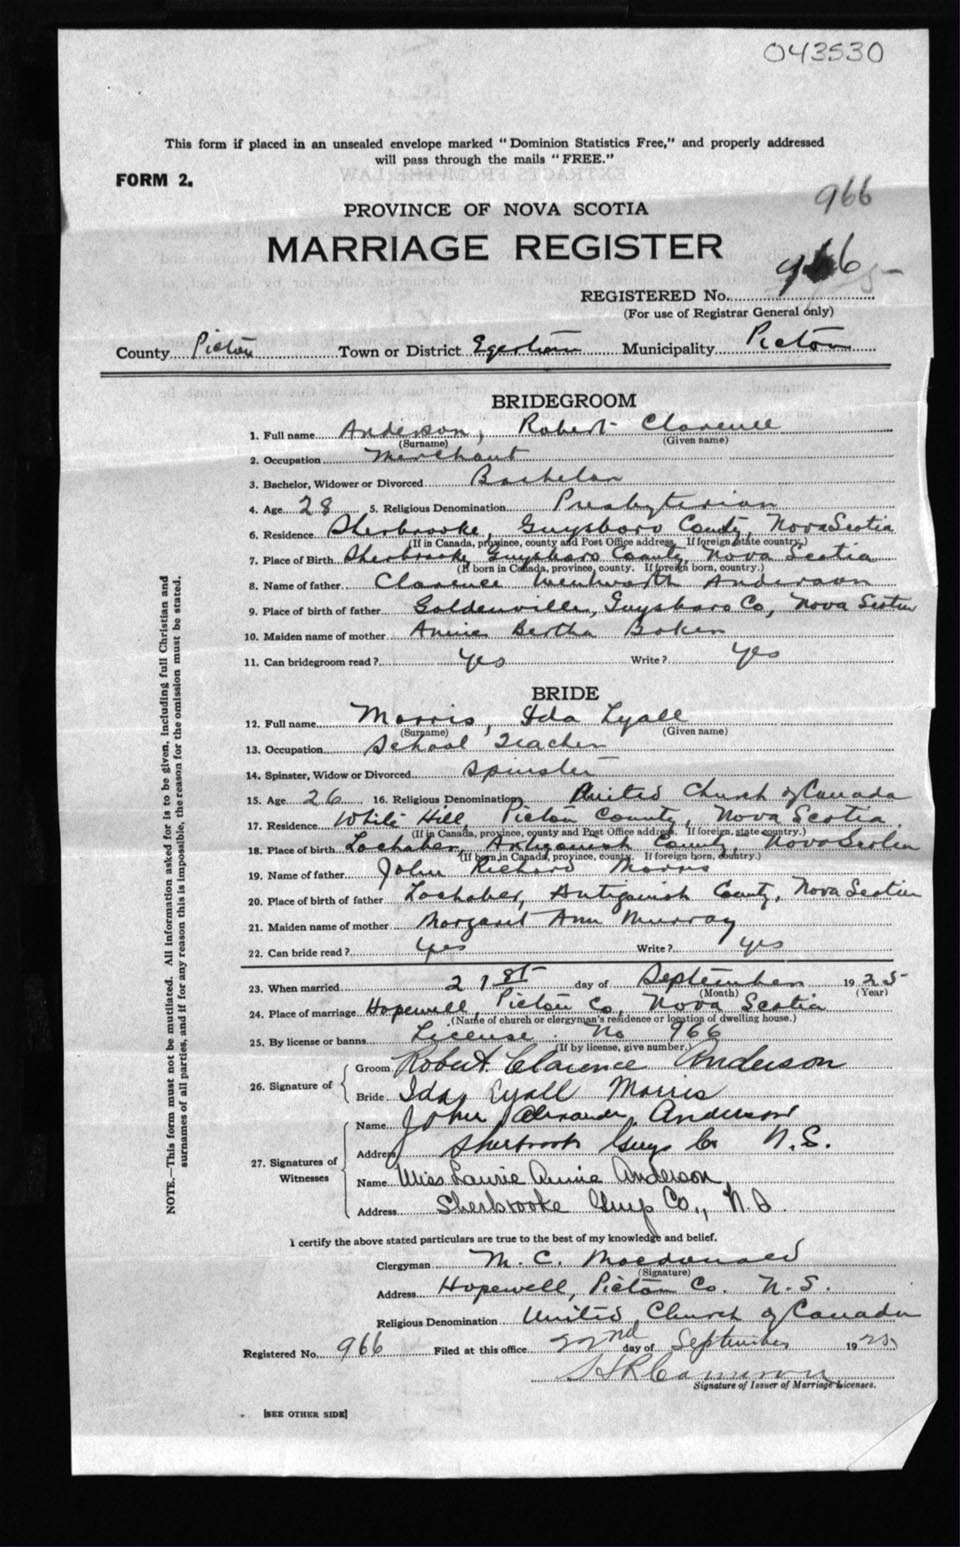 043530
This form if placed in an unsealed envelope marked "Dominion Statistics Free," and properly addressed
will pass through the mails "FREE."
FORM 2.
966
PROVINCE OF NOVA SCOTIA
MARRIAGE REGISTER
966
REGISTERED No.
(For use of Registrar General only)
County Pictou Town or District Egerton Municipality Pictou
BRIDEGROOM
1. Full name Anderson, Robert Clarence
(Surname) (Given name)
2. Occupation Merchant
3. Bachelor, Widower or Divorced Bachelor
4. Age 28 5. Religious Denomination Presbyterian
6. Residence Sherbrooke, Guysboro County, Nova Scotia
(If in Canada, province, county and Post Office address. If foreign state country.)
7. Place of Birth Sherbrooke Guysboro County Nova Scotia
(If born in Canada, province, county. If foreign born, country.)
8. Name of father Clarence Wentworth Anderson
9. Place of birth of father Goldenville, Guysboro Co, Nova Scotia
10. Maiden name of mother Annie Bertha Baker
11. Can bridegroom read? yes Write? yes
BRIDE
12. Full name Morris, Ida Lyall
(Surname) (Given name)
13. Occupation School Teacher
14. Spinster, Widow or Divorced Spinster
15. Age 26 16. Religious Denomination United Church of Canada
17. Residence White Hill, Pictou County, Nova Scotia
(If in Canada, province, county and Post Office address. If foreign, state country.)
18. Place of birth Lochaber, Antigonish County, Nova Scotia
(If born in Canada, province, county. If foreign born, country.)
19. Name of father John Richard Morris
20. Place of birth of father Lochaber, Antigonish County, Nova Scotia
21. Maiden name of mother Margaret Ann Murray
22. Can bride read? yes Write? yes
23. When married 21st day of September 1925
(Month) (Year)
24. Place of marriage Hopewell, Pictou Co, Nova Scotia
(Name of church or clergyman's residence or location of dwelling house.)
25. By license or banns License No 966
(If by license, give number.)
26. Signature of
Groom Robert Clarence Anderson
Bride Ida Lyall Morris
27. Signatures of Witnesses
Name John Alexander Anderson
Address Sherbrook Guys Co N.S.
Name Miss Laurie Annie Anderson
Address Sherbrooke Guys Co., N.S.
I certify the above stated particulars are true to the best of my knowledge and belief.
Clergyman M. C. Macdonald
(Signature)
Address Hopewell, Pictou Co. N.S.
Religious Denomination United Church of Canada
Registered No. 966 Filed at this office 22nd day of September 1925
Cameron
Signature of Issuer of Marriage Licenses.
[SEE OTHER SIDE]
NOTE.—This form must not be mutilated. All information asked for is to be given, including full Christian and
surnames of all parties, and if for any reason this is impossible, the reason for the omission must be stated.